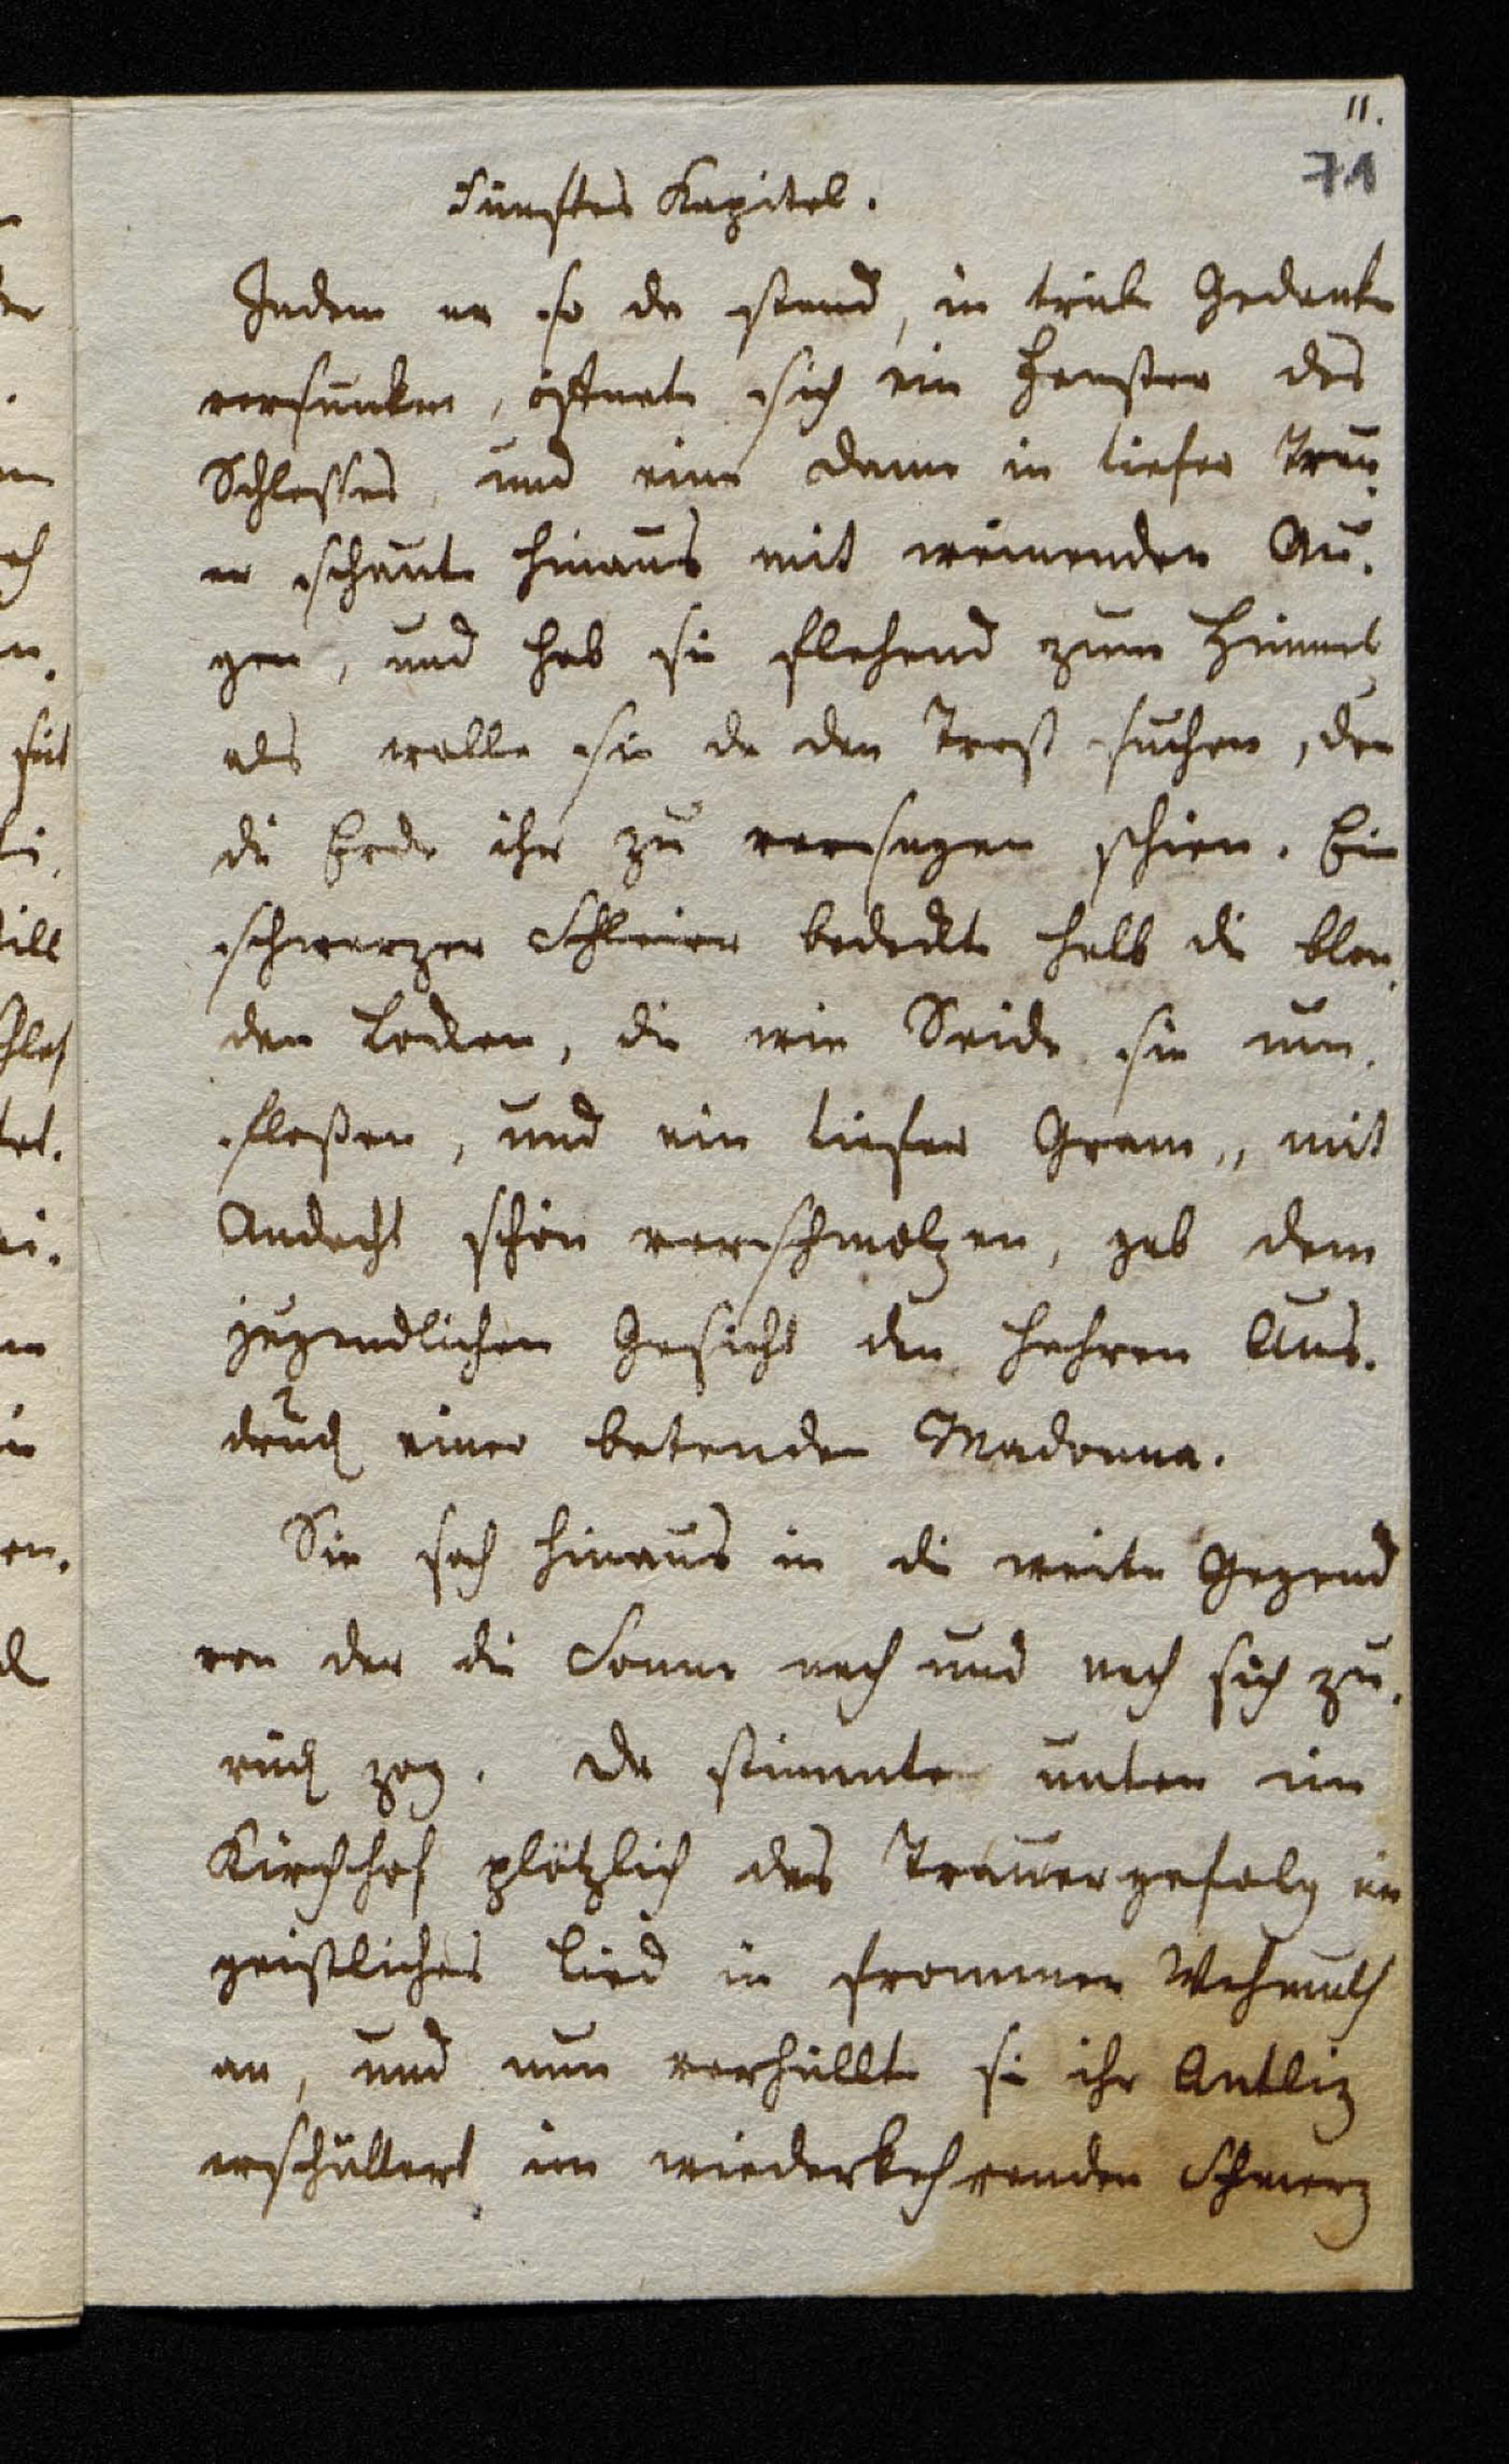 11.
71
Fünftes Kapitel.
Indem er so da stand, in trübe Gedanken
versunken, öffnete sich ein Fenster des
Schlosses, und eine Dame in tiefer Trau-
er schaute hinaus mit weinenden Au-
gen, und hob sie flehend zum Himmel
als wolle sie da den Trost suchen, den
die Erde ihr zu versagen schien. Ein
schwarzer Schleier bedeckte halb die blon-
den Locken, die wie Seide sie um-
floßen, und ein tiefer Gram, mit
Andacht schön verschmolzen, gab dem
jugendlichen Gesicht den hehren Aus-
druck einer betenden Madonna.
Sie sah hinaus in die weite Gegend
von der die Sonne nach und nach sich zu-
rück zog. Da stimmte unten im
Kirchhof plötzlich das Trauergefolg ein
geistliches Lied in frommer Wehmuth
an, und nun verhüllte sie ihr Antliz
erschüttert im wiederkehrenden Schmerz